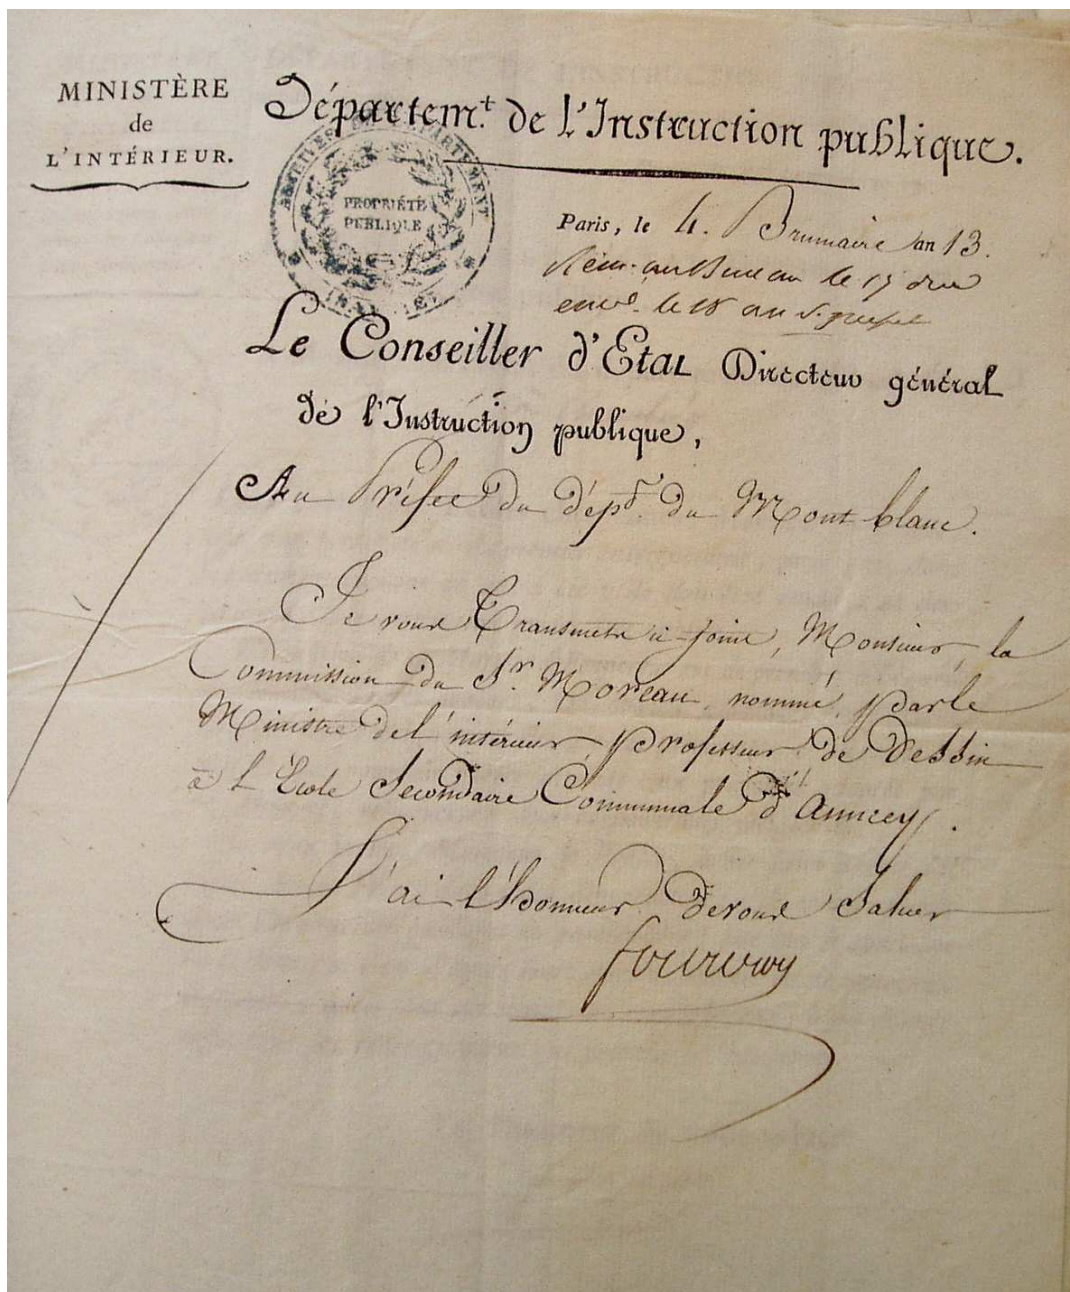 MINISTÈRE
de
L'INTÉRIEUR.
Départem.t de l'Instruction publique.
DÉPARTEMENT
PROPRIÉTÉ
PUBLIQUE
Paris, le 4. Brumaire an 13.
au Bureau le 17 du
le 18 au
Le Conseiller d'Etat Directeur général
de l'Instruction publique,
Au Préfet du dépt. du Mont blanc.
Je vous Transmets ci-joint, Monsieur, la
Commission du Sr. Moreau, nommé, par le
Ministre de l'intérieur, professeur de Dessin
à l'École Secondaire Communale d'annecy.
J'ai l'honneur de vous Saluer
fourcroy